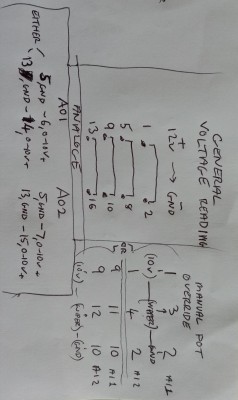 GENERAL
VOLTAGE READING
+ -
12V → GND
1 2
5 8
9 10
13 16
MANUAL POT
OVERRIDE
1 3 2 AI1
(10V) - (WIPER) - GND
1 4 2 AI2
OR
9 11 10 AI1
9 12 10 AI2
(10V) - (WIPER) - (GND)
ANALOGUE
AO1 AO2
EITHER
5, GND - 6, 0-10V+ 5, GND - 7, 0-10V+
13, GND - 14, 0-10V+ 13, GND - 15, 0-10V+